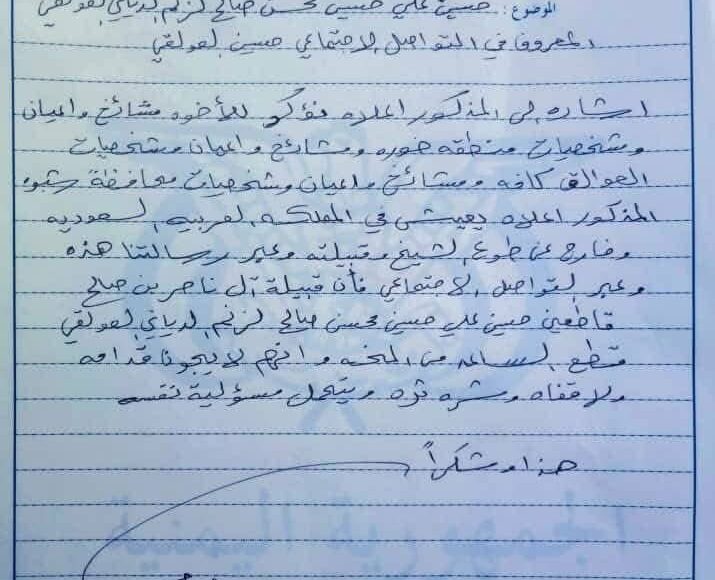 الموضوع: حسين علي حسين محسن صالح لزنم الدياني العولقي
المعروف في التواصل الاجتماعي حسين العولقي
اشاره الى المذكور اعلاه نؤكد للأخوه مشائخ واعيان
وشخصيات منطقه خوره ومشائخ واعيان وشخصيات
العوالق كافه ومشائخ واعيان وشخصيات محافظة شبوه
المذكور اعلاه يعيش في المملكه العربيه السعوديه
وخارج عن طوع الشيخ وقبيلته وعبر رسالتنا هذه
وعبر التواصل الاجتماعي فأن قبيلة آل ناصر بن صالح
قاطعين حسين علي حسين محسن صالح لزنم الدياني العولقي
قطع الساعد من المخه وانهم لا يجونا قدامه
ولا قفاه وشره ثره ويتحمل مسؤلية نفسه
هذا وشكراً
الجمهورية اليمنية